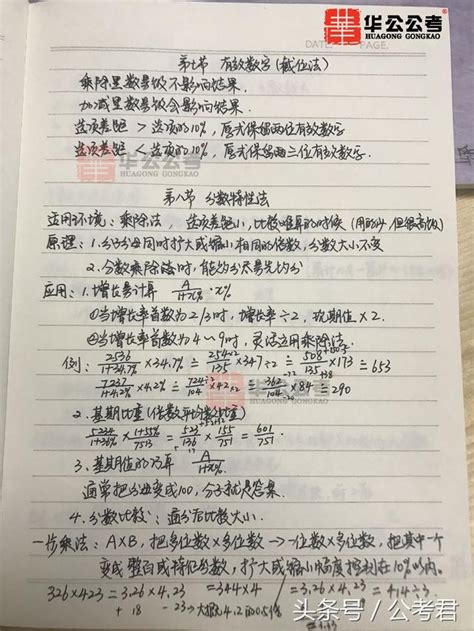 华公公考
HUAGONG GONGKAO
DATE. PAGE.
第七节 有效数字(截位法)
乘除里数量级不影响结果.
加减里数量级会影响结果.
选项差距 > 选项的10%, 尽式保留两位有效数字
选项差距 < 选项的10%, 尽式保留两三位有效数字.
华公公考
HUAGONG GONGKAO
第八节 分数特性法
适用环境: 乘除法, 选项差距小, 比较难算的时候 (用的少, 但很高级)
原理: 1.分子分母同时扩大或缩小相同的倍数, 分数大小不变
2.分数乘除法时, 能约分尽量先约分
应用: 1.增长量计算 A/1+x% · x%
①当增长率首数为2/3时, 增长率÷2, 现期值×2.
②当增长率首数为4~9时, 灵活运用乘除法.
例: 2536/1+34.7% ×34.7% ≐ 254×2/135 ×347÷2 ≐ 508/135 ×173 ≐ 653
7237/1+4.2% ×4.2% ≐ 724÷2/104 ×42×2 ≐ 362/104 ×84 ≐ 290
2.基期比重(倍数平均数比值)
5234/1+36% × 1+55%/7513 ≐ 523/136 × 155/751 ≐ 601/751
3.基期值的运算 A/1+x%
通常把分母变成100, 分子就是答案.
4.分数比较: 通分后比较大小.
一步乘法: A×B, 把多位数×多位数 → 一位数×多位数, 把其中一个
变成整百或特征分数, 扩大或缩小幅度控制在10%以内.
326×423 = 3.26×4.23 = 344×4 = 3.26×4.23 ≐ 414÷3.
+18 -23→大概4.2的0.5倍
头条号 / 公考君